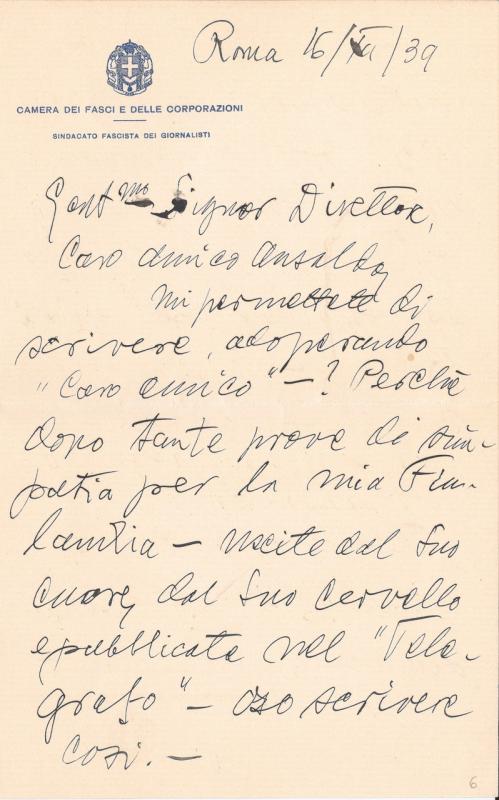 Roma 16/XII/39
CAMERA DEI FASCI E DELLE CORPORAZIONI
SINDACATO FASCISTA DEI GIORNALISTI
Gentmo Signor Direttore,
Caro amico Ansaldo,
mi permettete di
scrivere, adoperando
"Caro amico" — ? Perchè
dopo tante prove di sim-
patia per la mia Fin-
landia — uscite dal Suo
cuore, dal Suo cervello
e pubblicate nel "Tele-
grafo" — oso scrivere
così. —
6